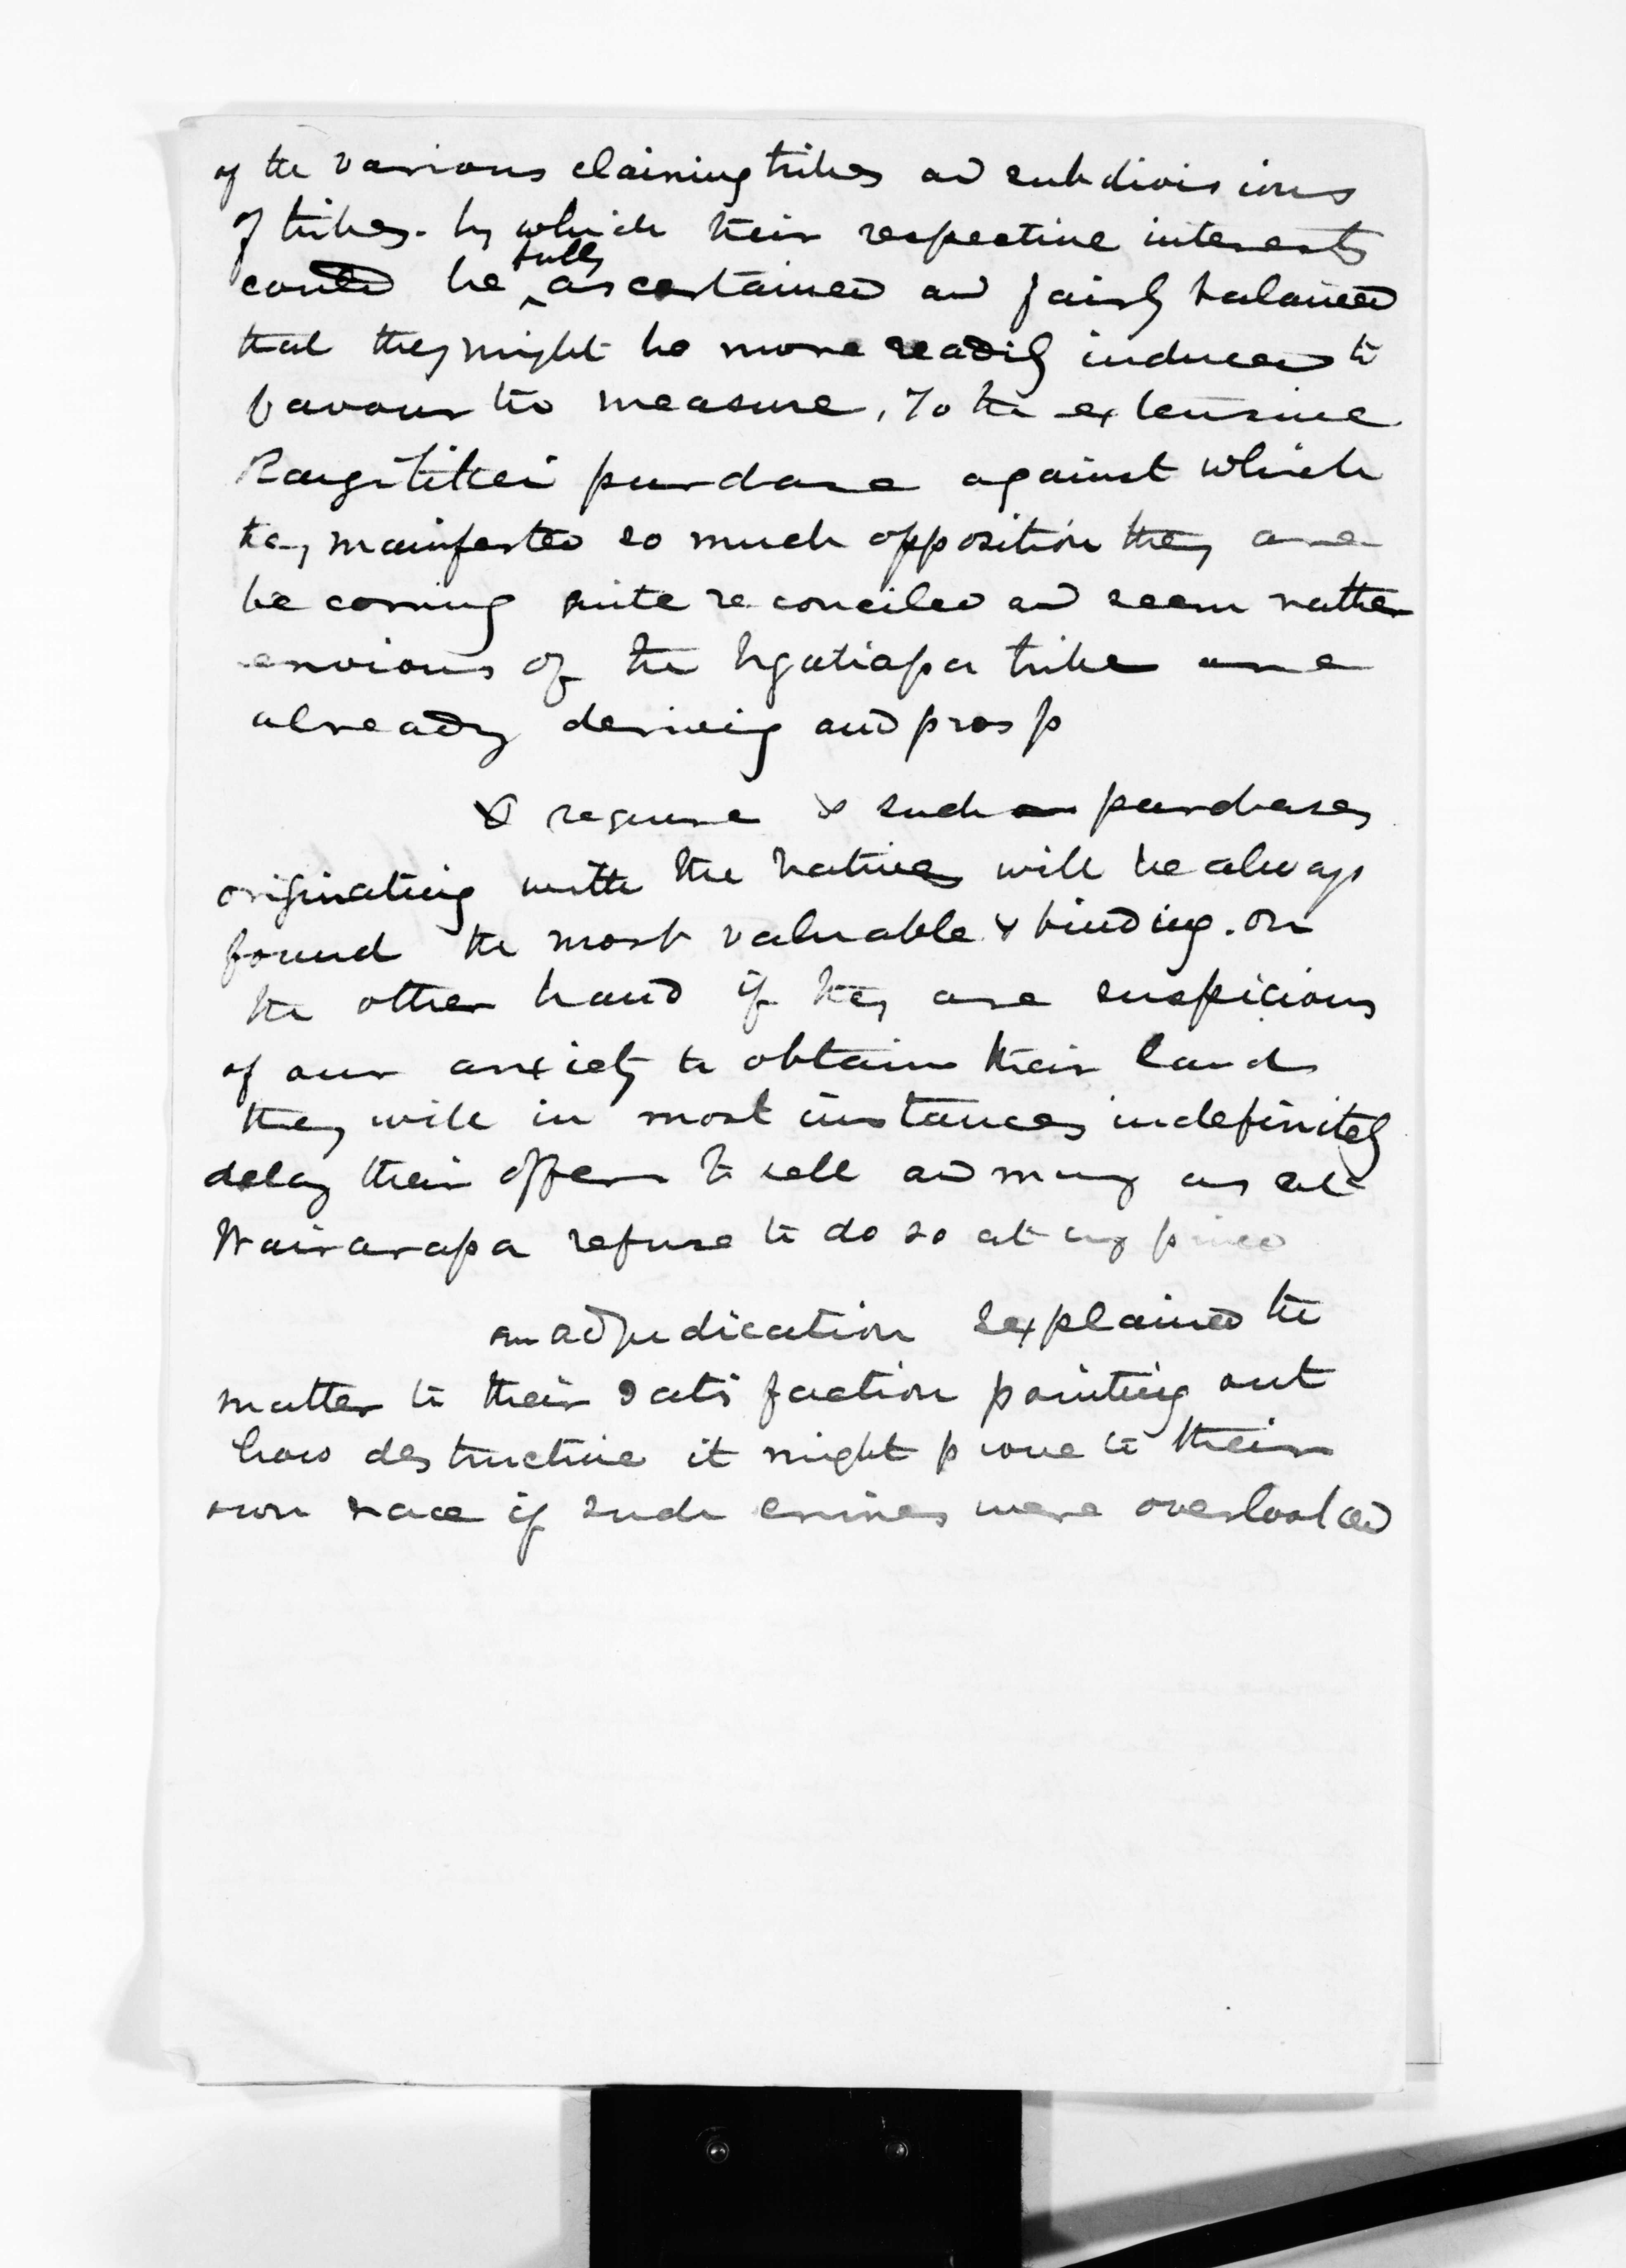 of the various claiming tribes and subdivisions
of tribes. by which their respective interests
could be fully ascertained and fairly balanced
that they might be more readily induced to
favour the measure. To the extensive
Rangitikei purchase against which
they manifested so much opposition they are
becoming quite reconciled and seem rather
envious of the Ngatiapa tribe are
already deriving and prosp
& require & such purchases
originating with the natives will be always
found the most valuable & binding. On
the other hand if they are suspicious
of our anxiety to obtain their land
they will in most instances indefinitely
delay their offers to sell and may as at
Wairarapa refuse to do so at any price
an adjudication explained the
matter to their satisfaction pointing out
how destructive it might prove to their
own race if such crimes were overlooked